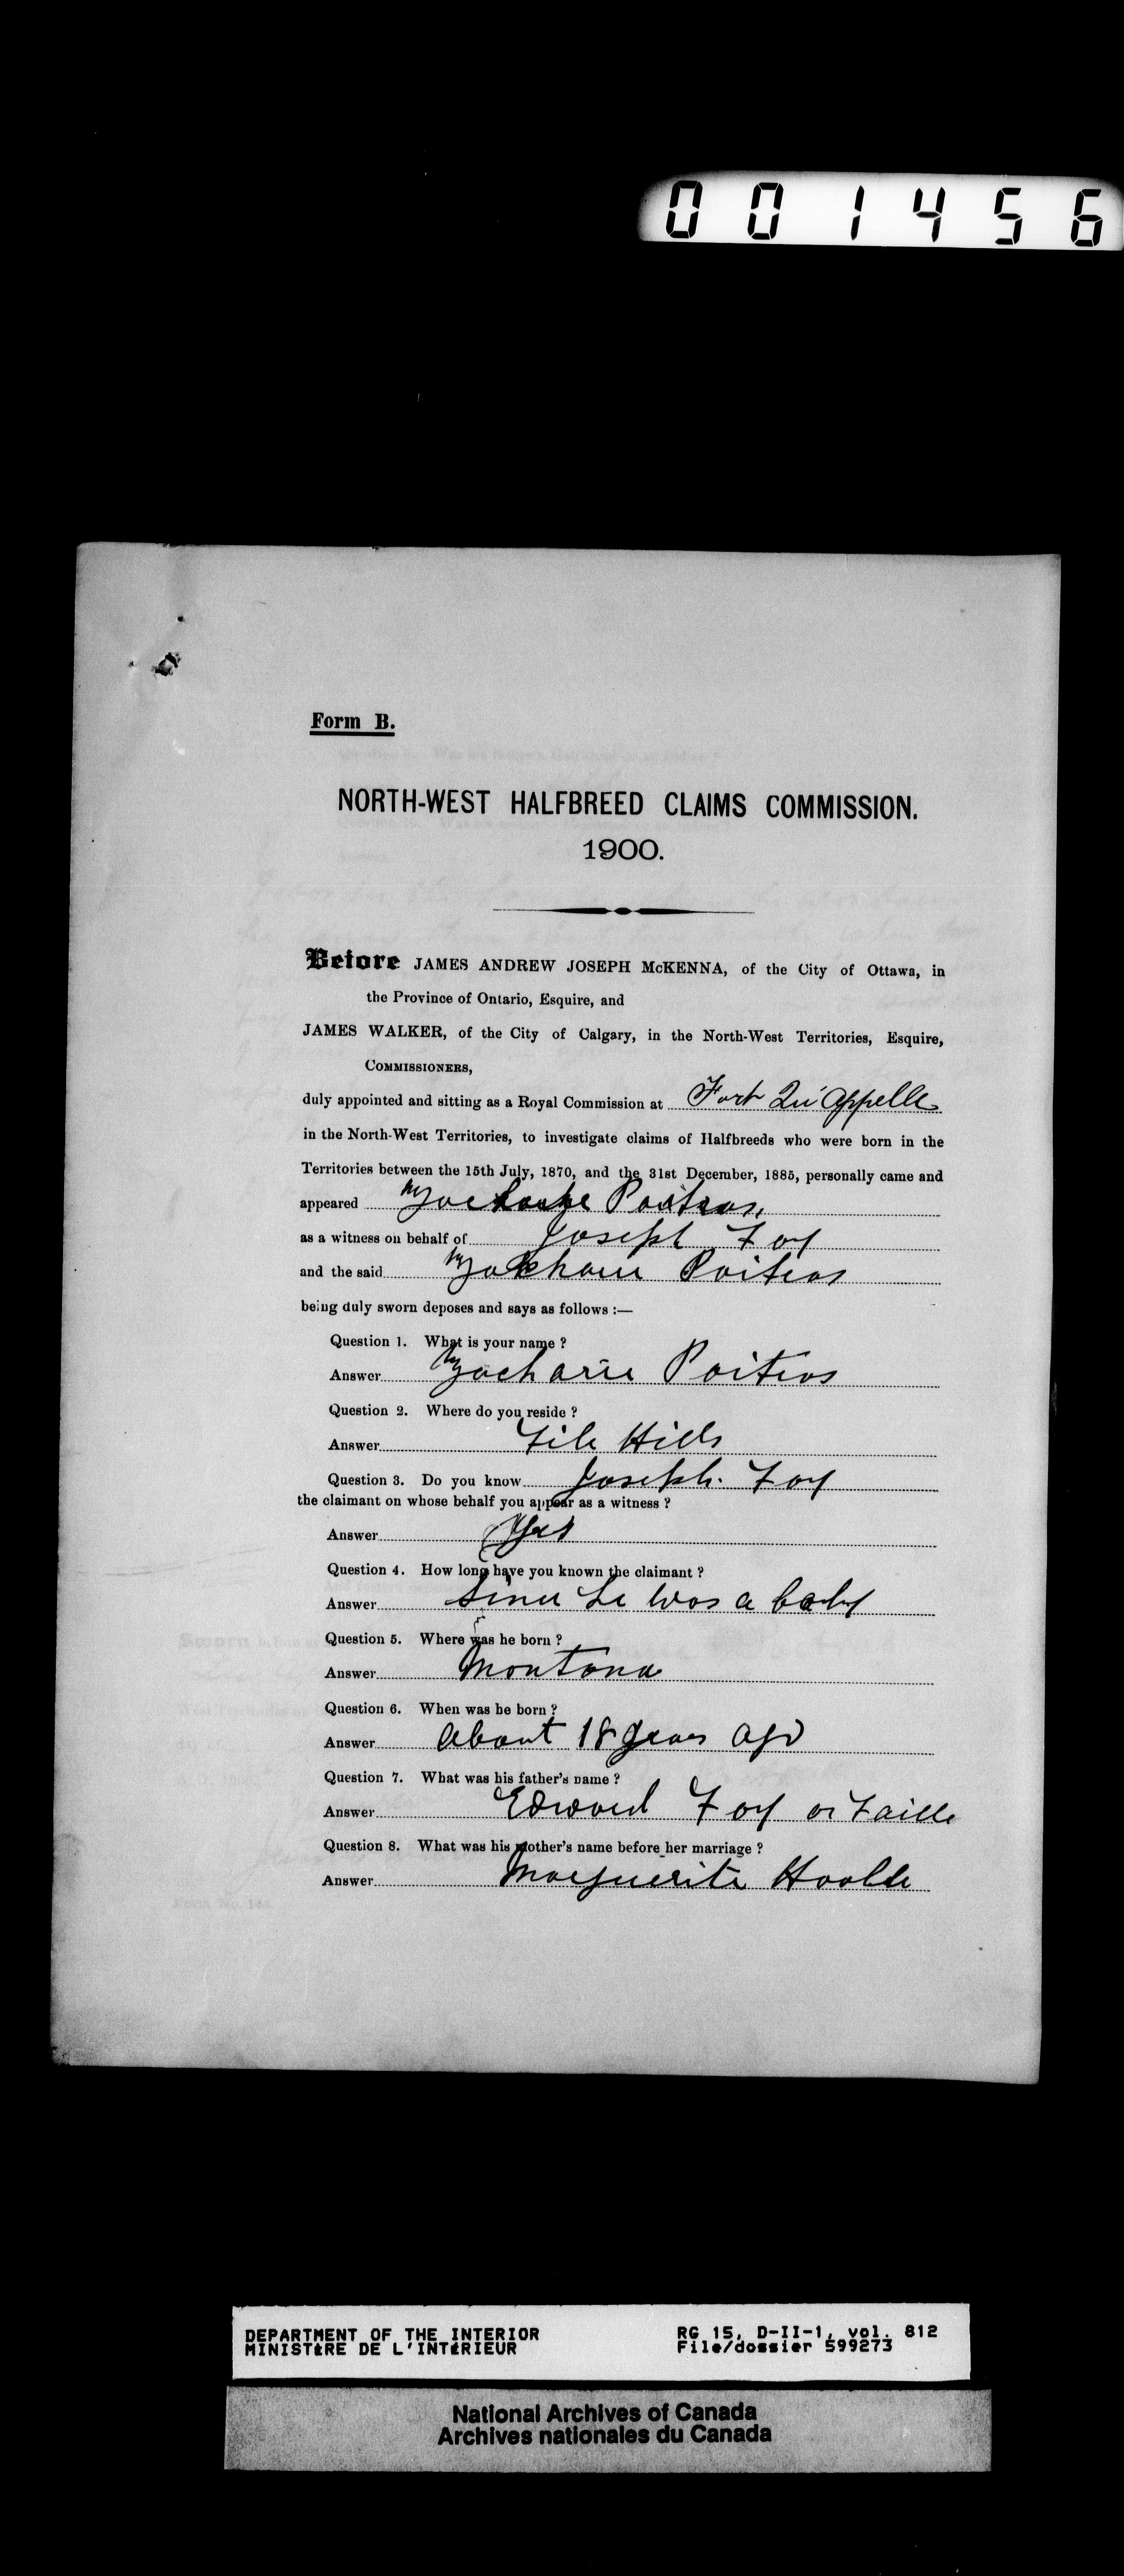 001456
Form B.
NORTH-WEST HALFBREED CLAIMS COMMISSION.
1900.
Before JAMES ANDREW JOSEPH McKENNA, of the City of Ottawa, in
the Province of Ontario, Esquire, and
JAMES WALKER, of the City of Calgary, in the North-West Territories, Esquire,
COMMISSIONERS,
duly appointed and sitting as a Royal Commission at Fort Qu'Appelle
in the North-West Territories, to investigate claims of Halfbreeds who were born in the
Territories between the 15th July, 1870, and the 31st December, 1885, personally came and
appeared Zacharie Poitras,
as a witness on behalf of Joseph Foy
and the said Zacharie Poitras
being duly sworn deposes and says as follows :—
Question 1. What is your name ?
Answer Zacharie Poitras
Question 2. Where do you reside ?
Answer File Hills
Question 3. Do you know Joseph Foy
the claimant on whose behalf you appear as a witness ?
Answer Yes
Question 4. How long have you known the claimant ?
Answer Since he was a baby
Question 5. Where was he born ?
Answer Montana
Question 6. When was he born ?
Answer About 18 years ago
Question 7. What was his father's name ?
Answer Edward Foy or Faille
Question 8. What was his mother's name before her marriage ?
Answer Marguerite
DEPARTMENT OF THE INTERIOR
MINISTÈRE DE L'INTÉRIEUR
RG 15, D-II-1, vol. 812
File/dossier 599273
National Archives of Canada
Archives nationales du Canada